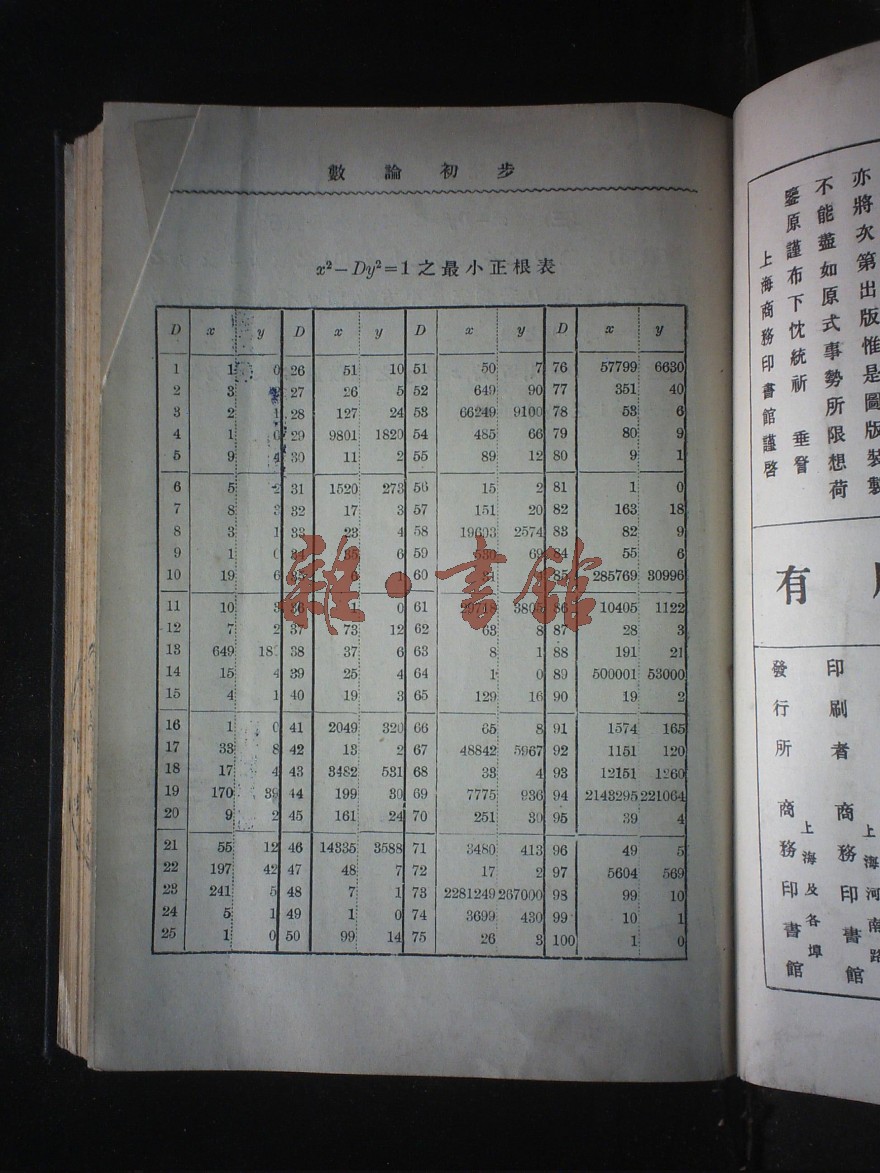 數論初步
x²−Dy²=1之最小正根表
D x y D x y D x y D x y
1 1 0 26 51 10 51 50 7 76 57799 6630
2 3 27 26 5 52 649 90 77 351 40
3 2 1 28 127 24 53 66249 9100 78 53 6
4 1 0 29 9801 1820 54 485 66 79 80 9
5 9 4 30 11 2 55 89 12 80 9 1
6 5 2 31 1520 273 56 15 2 81 1 0
7 8 3 32 17 3 57 151 20 82 163 18
8 3 1 33 23 4 58 19603 2574 83 82 9
9 1 0 34 35 6 59 530 69 84 55 6
10 19 6 35 6 1 60 31 85 285769 30996
11 10 3 36 1 0 61 29718 3805 86 10405 1122
12 7 2 37 73 12 62 63 8 87 28 3
13 649 18 38 37 6 63 8 1 88 191 21
14 15 4 39 25 4 64 1 0 89 500001 53000
15 4 1 40 19 3 65 129 16 90 19 2
16 1 0 41 2049 320 66 65 8 91 1574 165
17 33 8 42 13 2 67 48842 5967 92 1151 120
18 17 4 43 3482 531 68 33 4 93 12151 1260
19 170 39 44 199 30 69 7775 936 94 2143295 221064
20 9 2 45 161 24 70 251 30 95 39 4
21 55 12 46 14335 3588 71 3480 413 96 49 5
22 197 42 47 48 7 72 17 2 97 5604 569
23 241 5 48 7 1 73 2281249 267000 98 99 10
24 5 1 49 1 0 74 3699 430 99 10 1
25 1 0 50 99 14 75 26 3 100 1 0
雜·書館
亦將次第出版惟是圖版裝製
不能盡如原式事勢所限想荷
鑒原謹布下忱統祈 垂詧
上海商務印書館謹啓
有
印刷者 商務印書館
上海河南路
發行所 商務印書館
上海及各埠